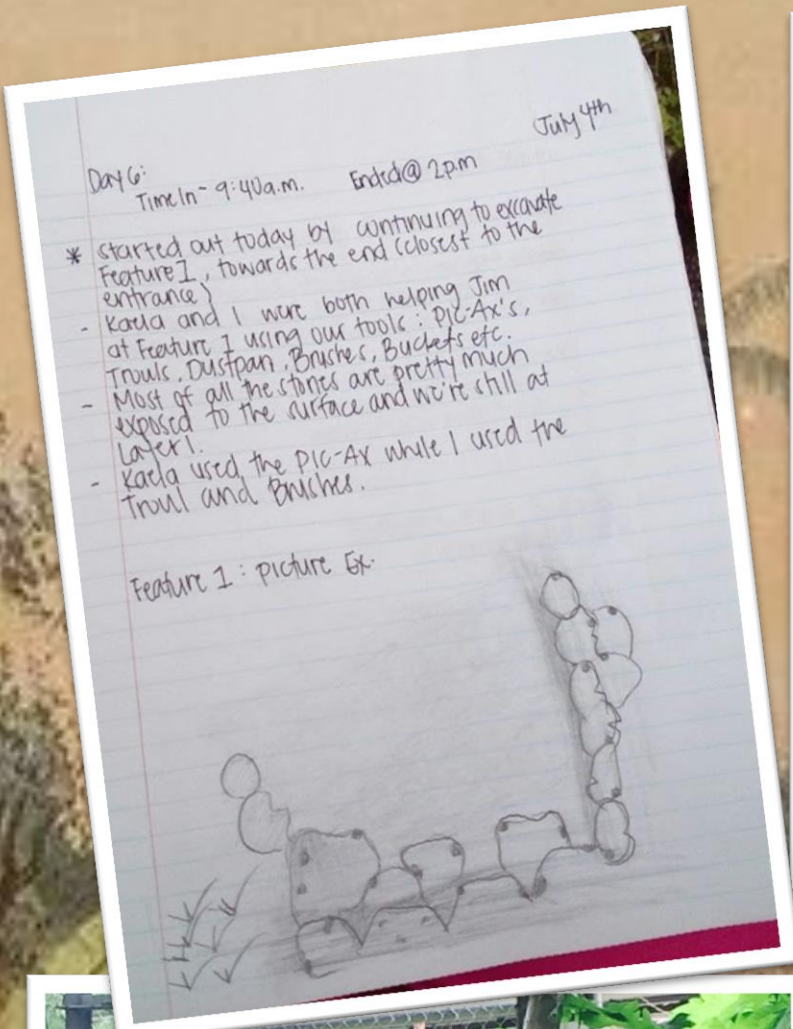 July 4th
Day 6:
Time In - 9:40a.m. Ended@ 2pm
* started out today by continuing to excavate
Feature 1, towards the end (closest to the
entrance)
- Kaela and I were both helping Jim
at Feature 1 using our tools: Pic-Ax's,
Trouls, Dustpan, Brushes, Buckets etc.
- Most of all the stones are pretty much
exposed to the surface and we're still at
Layer 1.
- Kaela used the Pic-Ax while I used the
Troul and Brushes.
Feature 1: picture Ex.